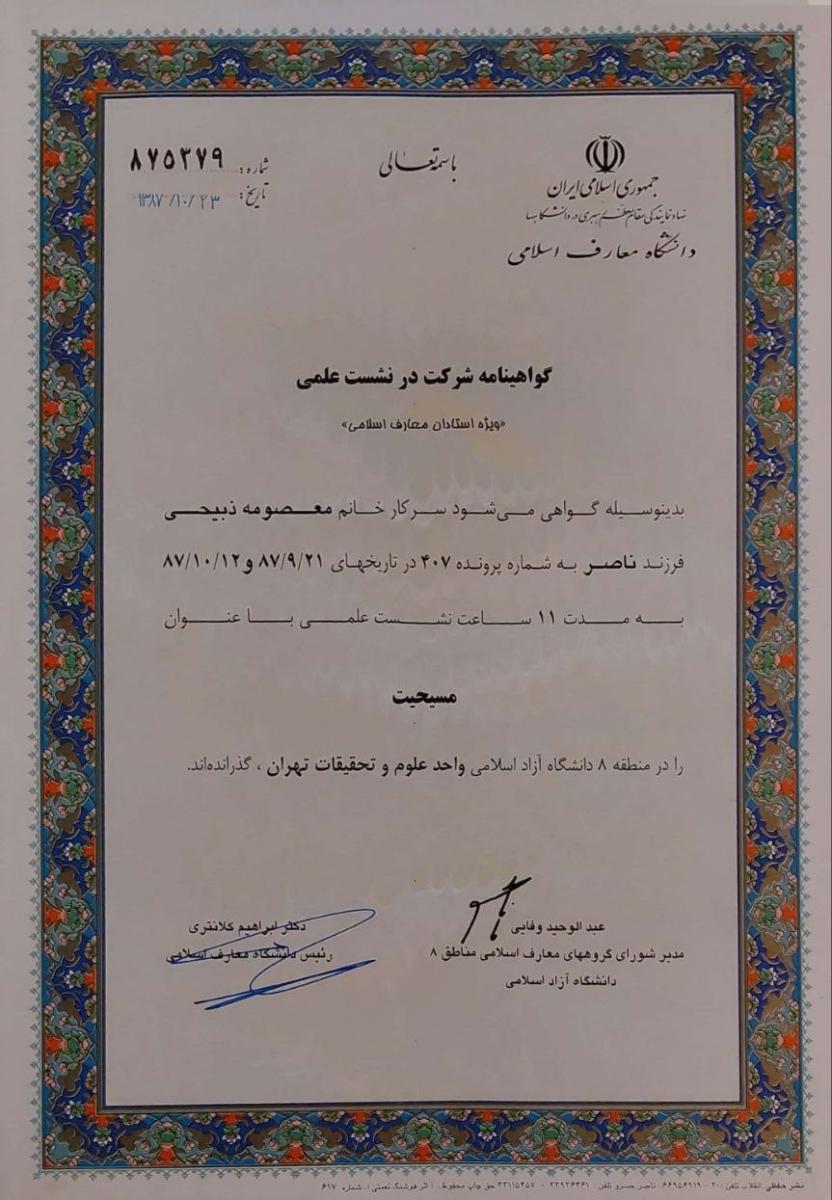 باسمه‌تعالی
جمهوری اسلامی ایران
نهاد نمایندگی مقام معظم رهبری در دانشگاهها
دانشگاه معارف اسلامی
شماره: ۸۷۵۲۷۹
تاریخ: ۱۳۸۷/۱۰/۲۳
گواهینامه شرکت در نشست علمی
«ویژه استادان معارف اسلامی»
بدینوسیله گواهی می‌شود سرکار خانم معصومه ذبیحی
فرزند ناصر به شماره پرونده ۴۰۷ در تاریخهای ۸۷/۹/۲۱ و ۸۷/۱۰/۱۲
به مدت ۱۱ ساعت نشست علمی با عنوان
مسیحیت
را در منطقه ۸ دانشگاه آزاد اسلامی واحد علوم و تحقیقات تهران ، گذرانده‌اند.
عبد الوحید وفایی
مدیر شورای گروههای معارف اسلامی مناطق ۸
دانشگاه آزاد اسلامی
دکتر ابراهیم کلانتری
رئیس دانشگاه معارف اسلامی
نشر حفظی انقلاب تلفن: ۲۰ - ۶۶۹۵۶۹۱۹ ناصر خسرو تلفن: ۳۳۹۲۶۴۶۱ - ۳۳۱۱۵۴۵۷ حق چاپ محفوظ. شماره ۶۱۷